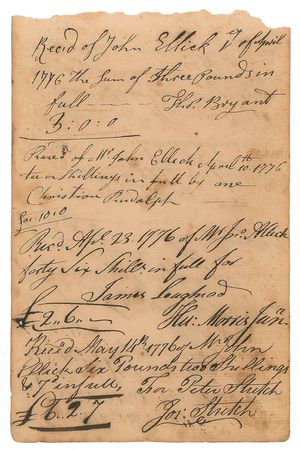 Receid of John Ellick 1st of April
1776 the Sum of Three Pounds in
full Thos. Bryant
3:0:0
Receid of Mr. John Ellick April 10th 1776
ten Shillings in full by me
Christian Rudolph
£0:10:0
Recd. Apl. 23 1776 of Mr. Jno. Alleck
forty Six Shills. in full for
James
£2..6.. Morris Junr.
Receid May 14th 1776 of Mr. John
Ellick Six Pounds two Shillings
& 7d in full, For Peter Stretch
£6..2..7 Jos. Stretch